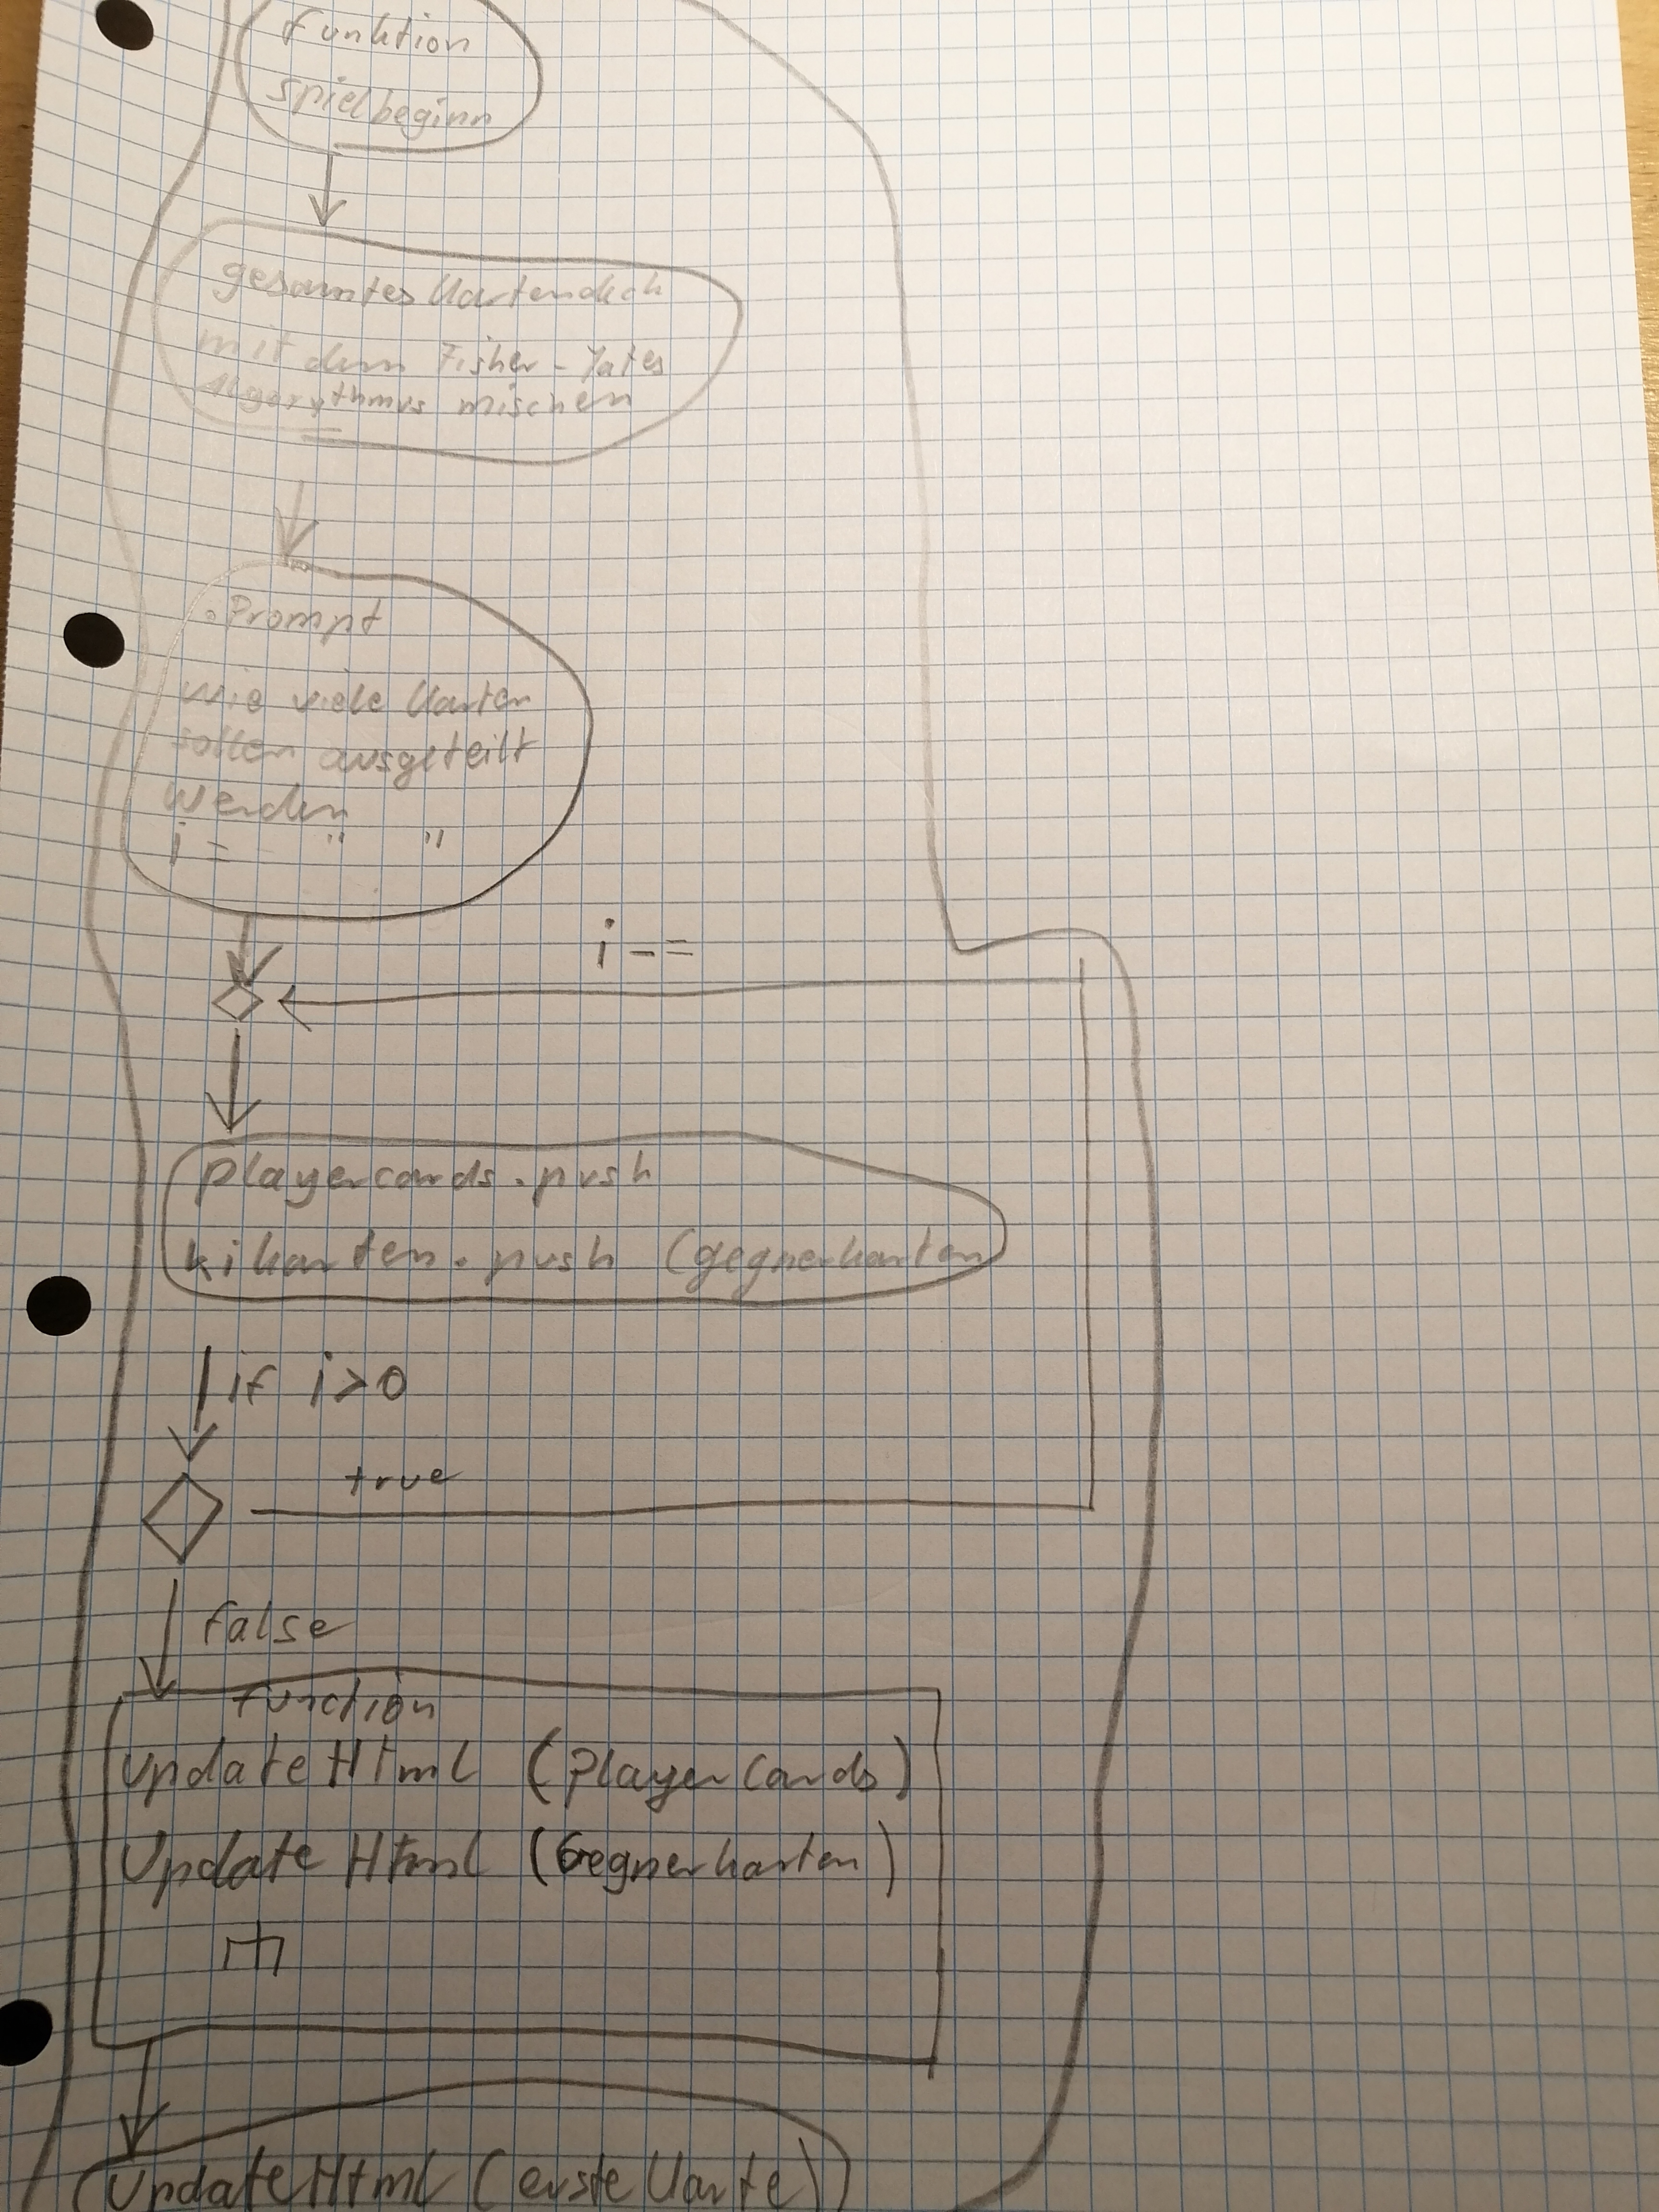 Funktion
Spielbeginn
gesamtes Kartendeck
mit dem Fisher-Yates
Algorythmus mischen
Prompt
wie viele Karten
sollen ausgeteilt
werden
i = " "
i -=
playercards.push
kikarten.push (gegnerkarten
if i>0
true
false
function
updateHtml (playerCards)
Update Html (Gegnerkarten)
updateHtml (erste Karte)